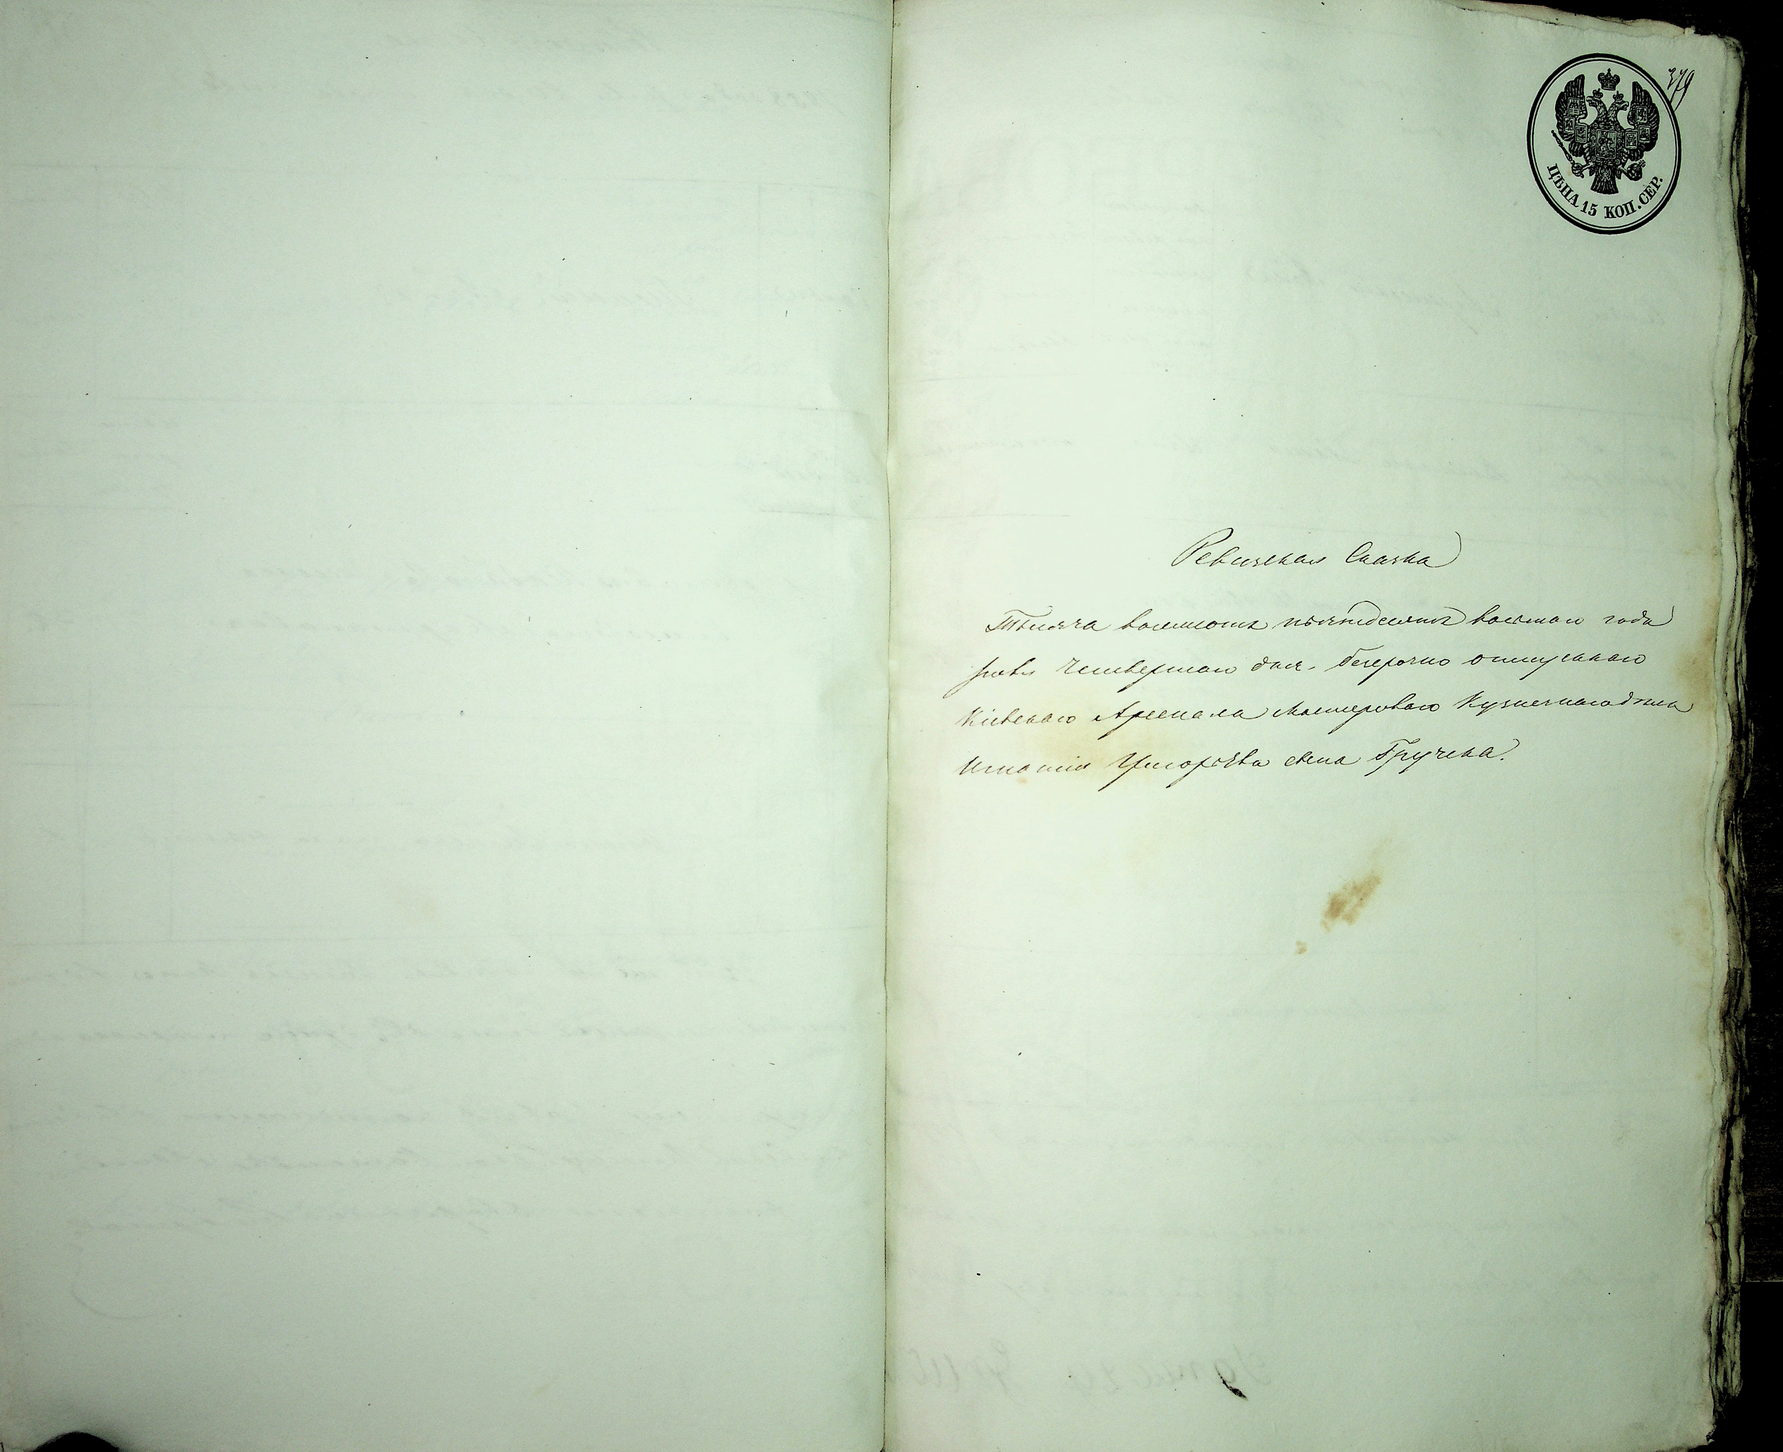 379
ЦѢНА 15 КОП. СЕР.
Ревизская Сказка
Тысяча восемсотъ пятьдесятъ восьмаго года
четвертаго дня. безсрочно отпускнаго
Кіевскаго Арсенала Мастероваго Кузнечнаго дѣла
Игнатія Григорьева сына Гручека.